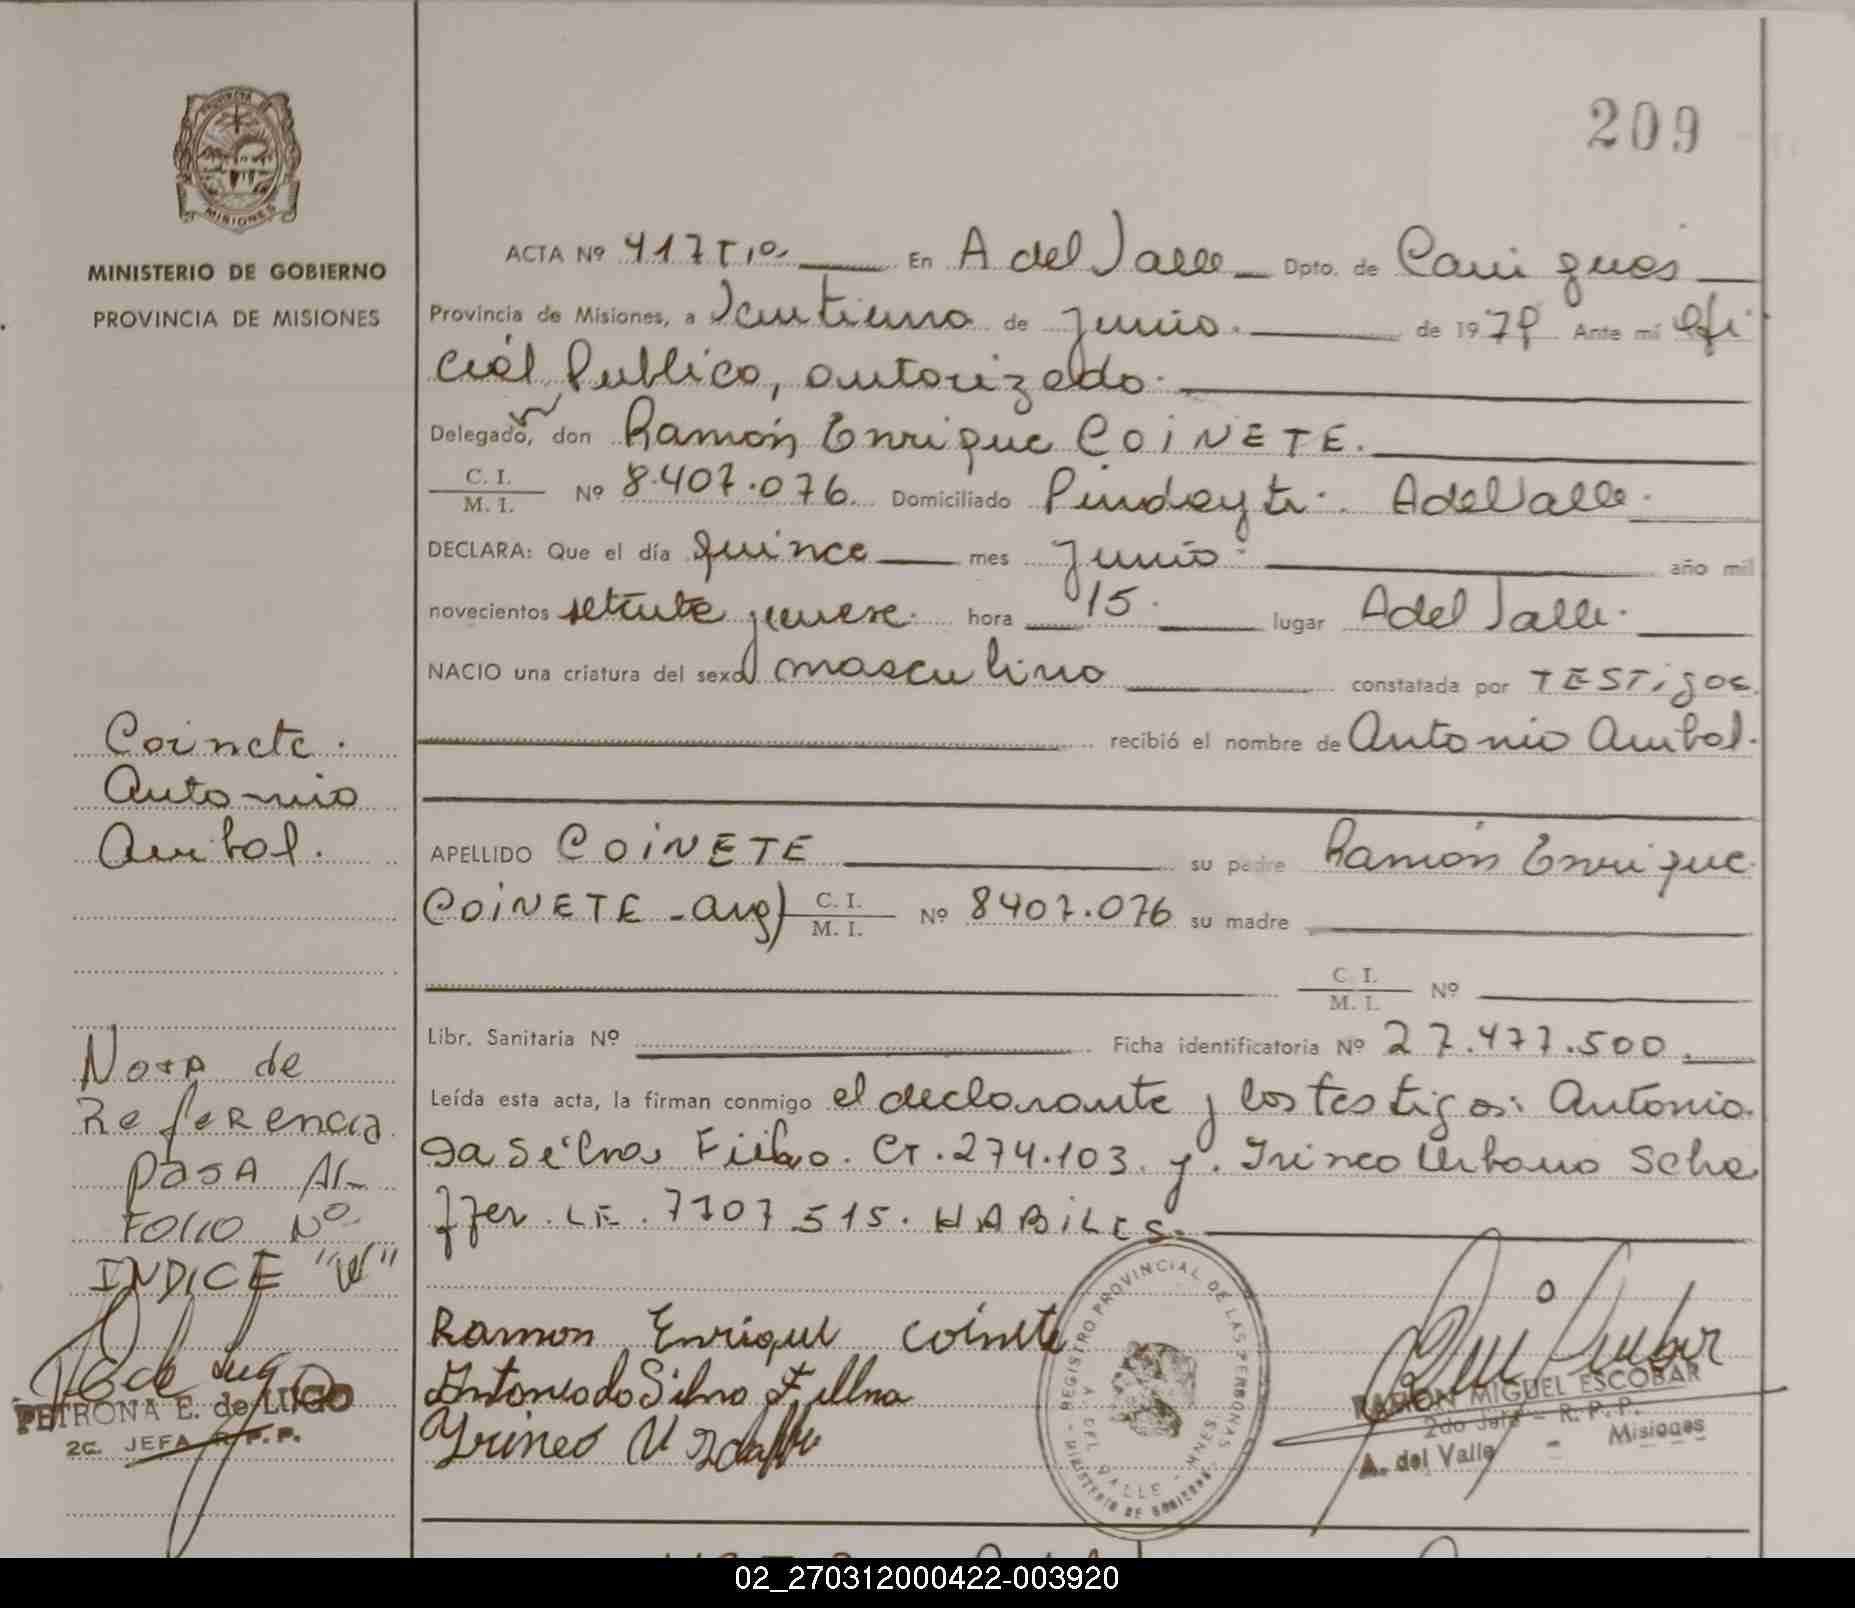 209
PROVINCIA DE
MISIONES
MINISTERIO DE GOBIERNO
PROVINCIA DE MISIONES
ACTA Nº 417 Tº En A del Valle Dpto. de Cainguás
Provincia de Misiones, a Veintiuno de Junio. de 1979 Ante mí Ofi
cial Publico, autorizado.
Delegado, don Ramón Enrique COINETE.
C. I.
M. I. Nº 8.407.076. Domiciliado Pindayti. A del Valle.
DECLARA: Que el día quince mes Junio año mil
novecientos setenta y nueve. hora 15. lugar A del Valle.
NACIO una criatura del sexo masculino constatada por TESTigos
recibió el nombre de Antonio Anibal.
APELLIDO COINETE su padre Ramón Enrique
COINETE - arg) C. I.
M. I. Nº 8407.076 su madre
C. I.
M. I. Nº
Libr. Sanitaria Nº Ficha identificatoria Nº 27.477.500.
Leída esta acta, la firman conmigo el declarante y los testigos: Antonio
da Silva, CI. 274.103. y. Irineo Urbano Scha
ffer. LE. 7707.515. HABILES.
Coinete.
Antonio
Anibal.
Nota de
Referencia
PASA AL
FOLIO Nº
INDICE "W"
PETRONA E. de LUGO
2a. JEFA R. P. P.
Ramon Enrique Coinete
Antonio do Silva
Yrineo U
REGISTRO PROVINCIAL DE LAS PERSONAS
A. DEL VALLE - MNES.
MINISTERIO DE GOBIERNO
RAMON MIGUEL ESCOBAR
2do Jefe - R. P. P.
A. del Valle - Misiones
02_270312000422-003920